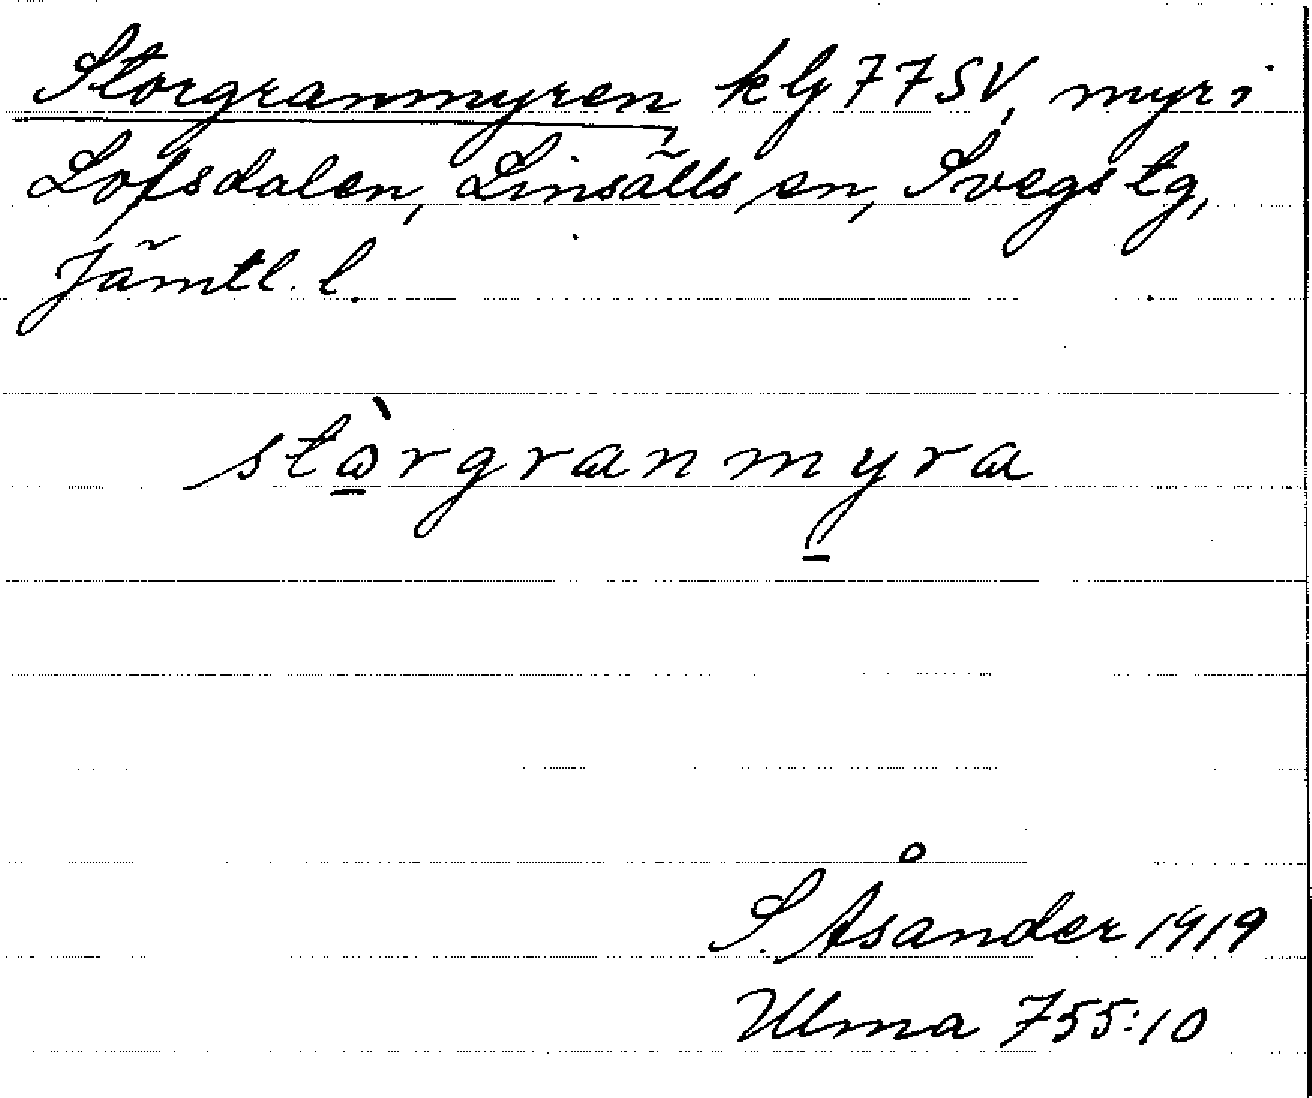 Storgranmyren, kbj 77SV, myr i
Lofsdalen, Linsälls sn, Svegs tg,
Jämtl. l.
stòrgranmyra
S. Åsander 1919
Ulma 755:10